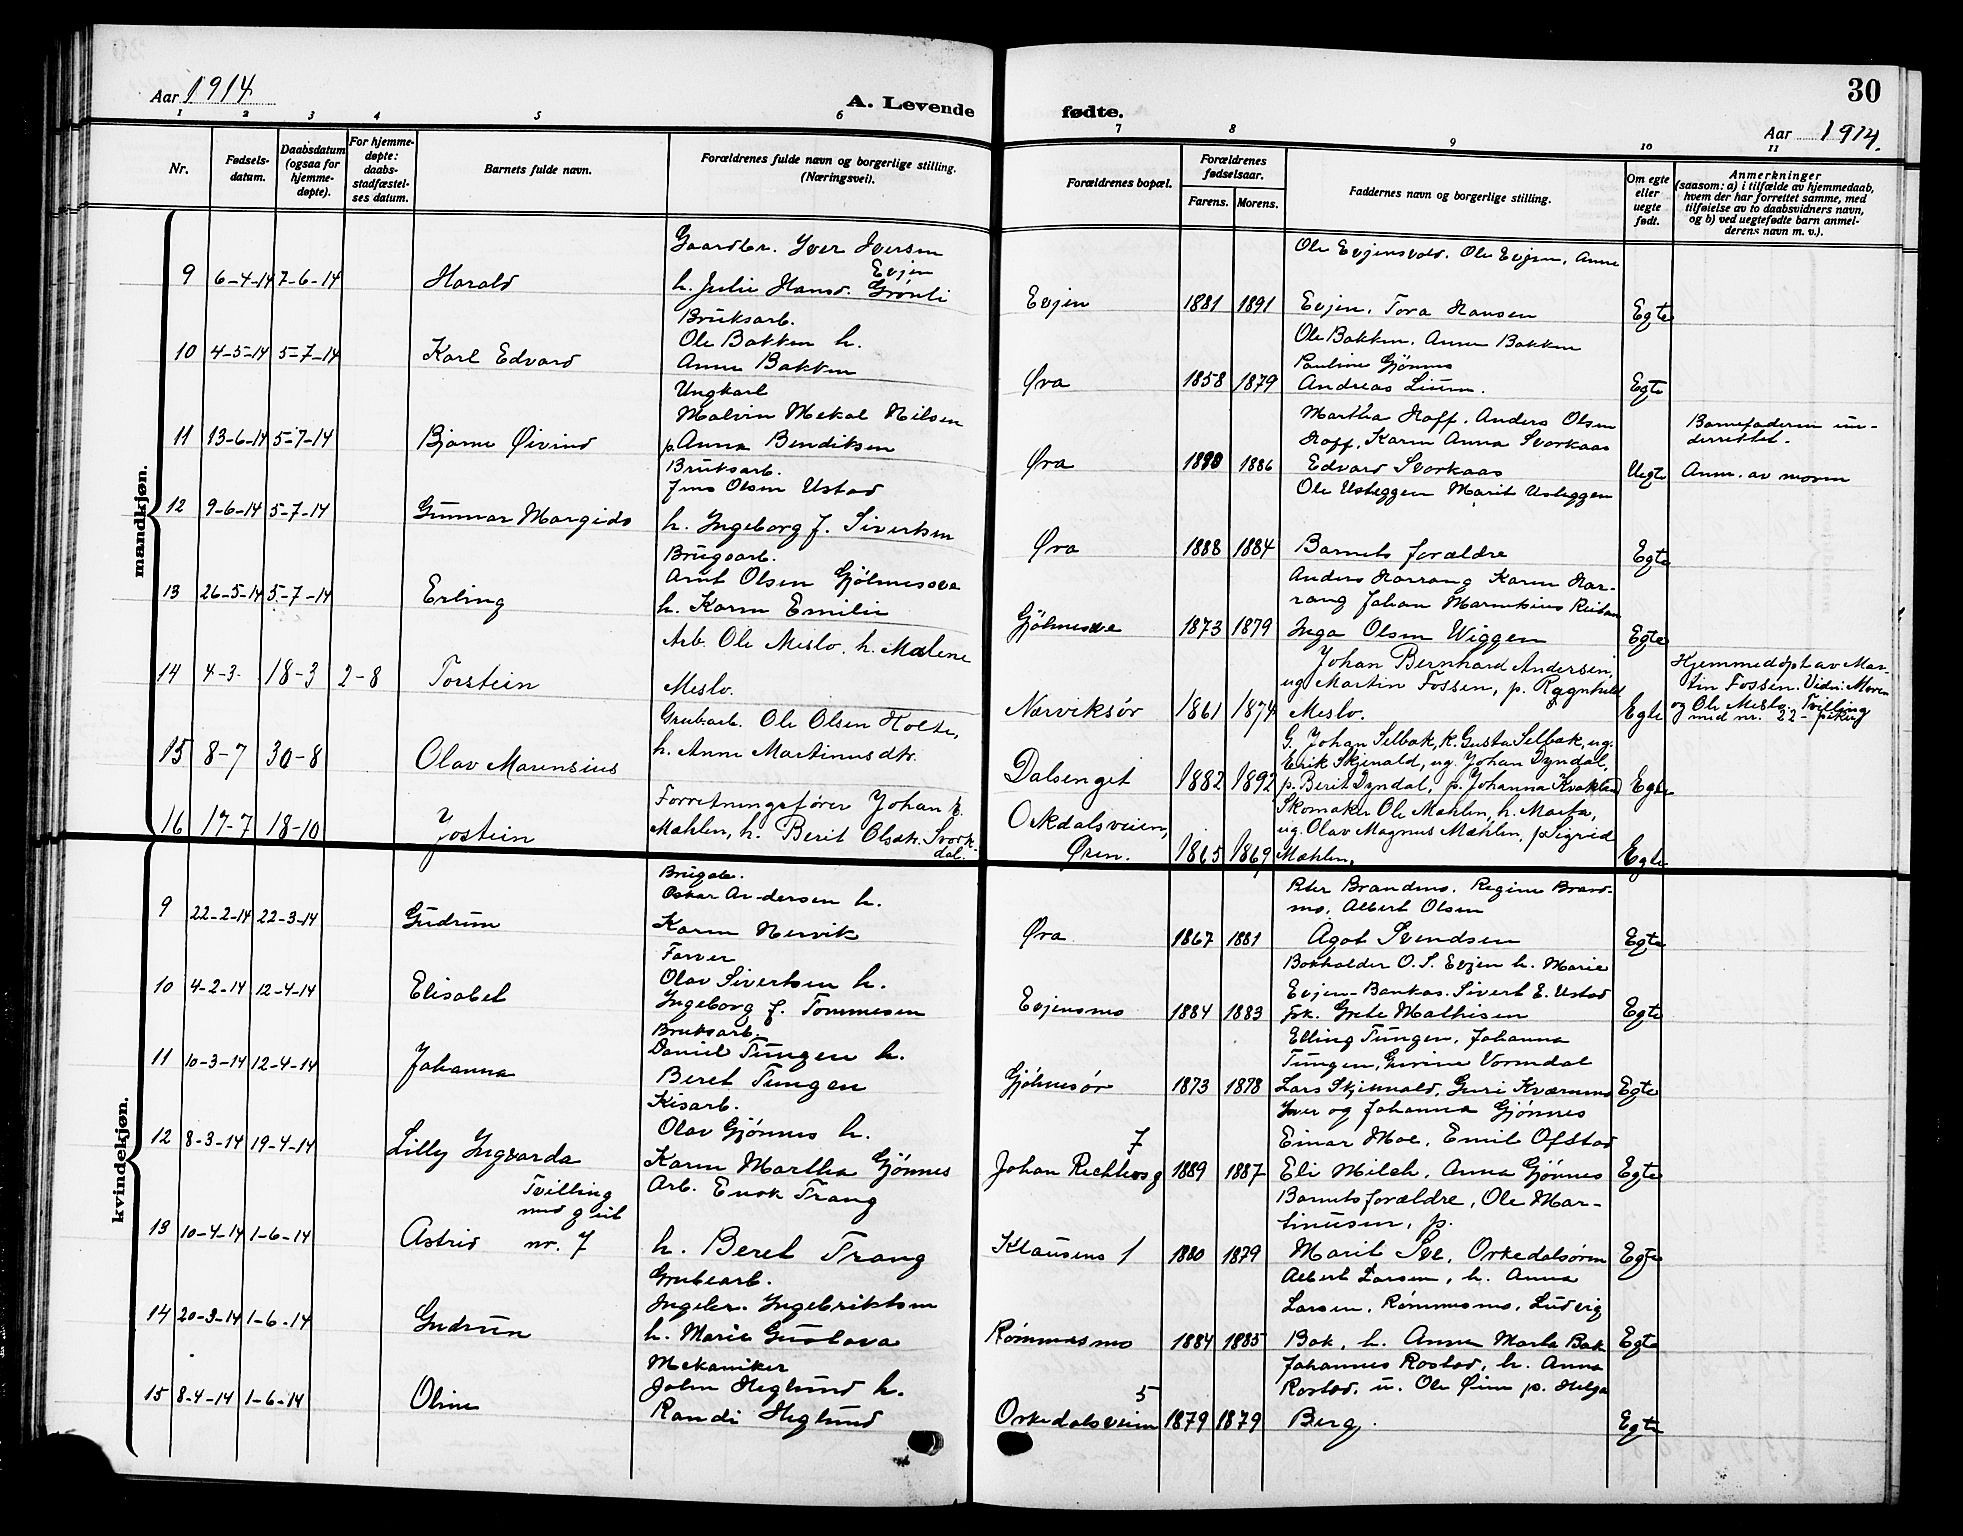 Aar 1914
A. Levende
fødte.
30
Aar 1914.
1 2 3 4 5 6 7 8 9 10 11
Nr.
Fødsels-datum.
Daabsdatum (ogsaa for hjemme-døpte).
For hjemme-døpte: daabs-stadfæstel-ses datum.
Barnets fulde navn.
Forældrenes fulde navn og borgerlige stilling. (Næringsvei).
Forældrenes bopæl.
Forældrenes fødselsaar.
Farens. Morens.
Faddernes navn og borgerlige stilling.
Om egte eller uegte født.
Anmerkninger
(saasom: a) i tilfælde av hjemmedaab,
hvem der har forrettet samme, med
tilføielse av to daabsvidners navn,
og b) ved uegtefødte barn anmel-
derens navn m. v.).
mandkjøn.
9 6-4-14 7-6-14 Harald
Gaardbr. Iver Iversen
Evjen
h. Julie Hansd. Grønli
Evjen 1881 1891
Ole Evjensvold. Ole Evjen, Anne
Evjen, Tora Hansen
Egte
10 4-5-14 5-7-14 Karl Edvard
Bruksarb.
Ole Bakken h.
Anne Bakken
Øra 1858 1879
Ole Bakken, Anne Bakken
Pauline Gjønnes
Andreas Lium.
Egte
11 13-6-14 5-7-14 Bjarne Øivind
Ungkarl
Malvin Mekal Nilsen
p. Anna Bendiksen
Øra 1890 1886
Martha Hoff, Anders Olsen
Hoff, Karen Anna Svorkaas
Edvard Svorkaas
Uegte
Barnefaderen un-
derrettet.
Anm. av moren
12 9-6-14 5-7-14 Gunnar Margido
Bruksarb.
Jens Olsen Ustad
h. Ingeborg f. Sivertsen
Øra 1888 1884
Ole Usteggen Marit Usteggen
Barnets forældre
Egte
13 26-5-14 5-7-14 Erling
Brugsarb.
Arnt Olsen Gjølmesøve
h. Karen Emilie
Gjølmesøve 1873 1879
Anders Harrang Karen Har-
rang Johan Marentius Reitan
Inga Olsen Wiggen
Egte
14 4-3- 18-3 2-8 Torstein
Arb. Ole Meslo. h. Malene
Meslo.
Nærviksør 1861 1874
Johan Bernhard Andersen,
ug Martin Fossen, p. Ragnhild
Meslo.
Egte
Hjemmedøpt av Mar-
tin Fossen. Vidn: Moren
og Ole Meslo. Tvilling
med nr. 22 - pikeg
15 8-7 30-8 Olav Marensius
Grubearb. Ole Olsen Holte,
h. Anne Martinusdtr.
Dalsenget 1882 1892
G. Johan Selbak, k. Gusta Selbak, ug.
Erik Skjenald, ug. Johan Dyndal,
p. Berit Dyndal, p. Johanna
Egte
16 17-7 18-10 Jostein
Forretningsfører Johan E.
Mæhlen, h. Berit Olsdtr. Svork-
dal.
Orkdalsveien,
Øren. 1865 1869
Skomaker Ole Mæhlen, h. Marta,
ug. Olav Magnus Mæhlen, p. Sigrid
Mæhlen.
Egte
kvindekjøn.
9 22-2-14 22-3-14 Gudrun
Brugsb.
Oskar Andersen h.
Karen Nervik
Øra 1867 1881
Peter Brandmo. Regine Brand-
mo, Albert Olsen
Agot Svendsen
Egte
10 4-2-14 12-4-14 Elisabet
Farver
Olav Sivertsen h.
Ingeborg f. Tommesen
Evjensmo 1884 1883
Bokholder O. S. Evjen h. Marie
Evjen - Bankas. Sivert E. Ustad
frk. Grete Mathisen
Egte
11 10-3-14 12-4-14 Johanna
Bruksarb.
Daniel Tungen h.
Beret Tungen
Gjølmesør 1873 1878
Elling Tungen, Johanna
Tungen, Gurine Vormdal
Lars Skjenald, Guri Kværnmo
Egte
12 8-3-14 19-4-14 Lilly Ingvarda
Kisarb.
Olav Gjønnes h.
Karen Martha Gjønnes
7
Johan Richtersg 1889 1887
Iver og Johanna Gjønnes
Einar Moe, Emil Ofstad
Eli Milch, Anna Gjønnes
Egte
13 10-4-14 1-6-14 Astrid
Tvilling
med gut
nr. 7
Arb. Enok Trang
h. Beret Trang
Klausens 1 1880 1879
Barnets forældre, Ole Mar-
tinusen, p.
Marit Sve, Orkedalsøren
Egte
14 20-3-14 1-6-14 Gudrun
Grubearb.
Ingebr. Ingebriktsen
h. Marie Gustava
Rømmesmo 1884 1885
Albert Larsen, h. Anna
Larsen, Rømmesmo, Ludvig
Bak, h. Anne Marta Bak
Egte
15 8-4-14 1-6-14 Oline
Mekaniker
John Heglund h.
Randi Heglund
5
Orkedalsveien 1879 1879
Johannes Rostad, h. Anna
Rostad. u. Ole Øien p. Helga
Berg.
Egte